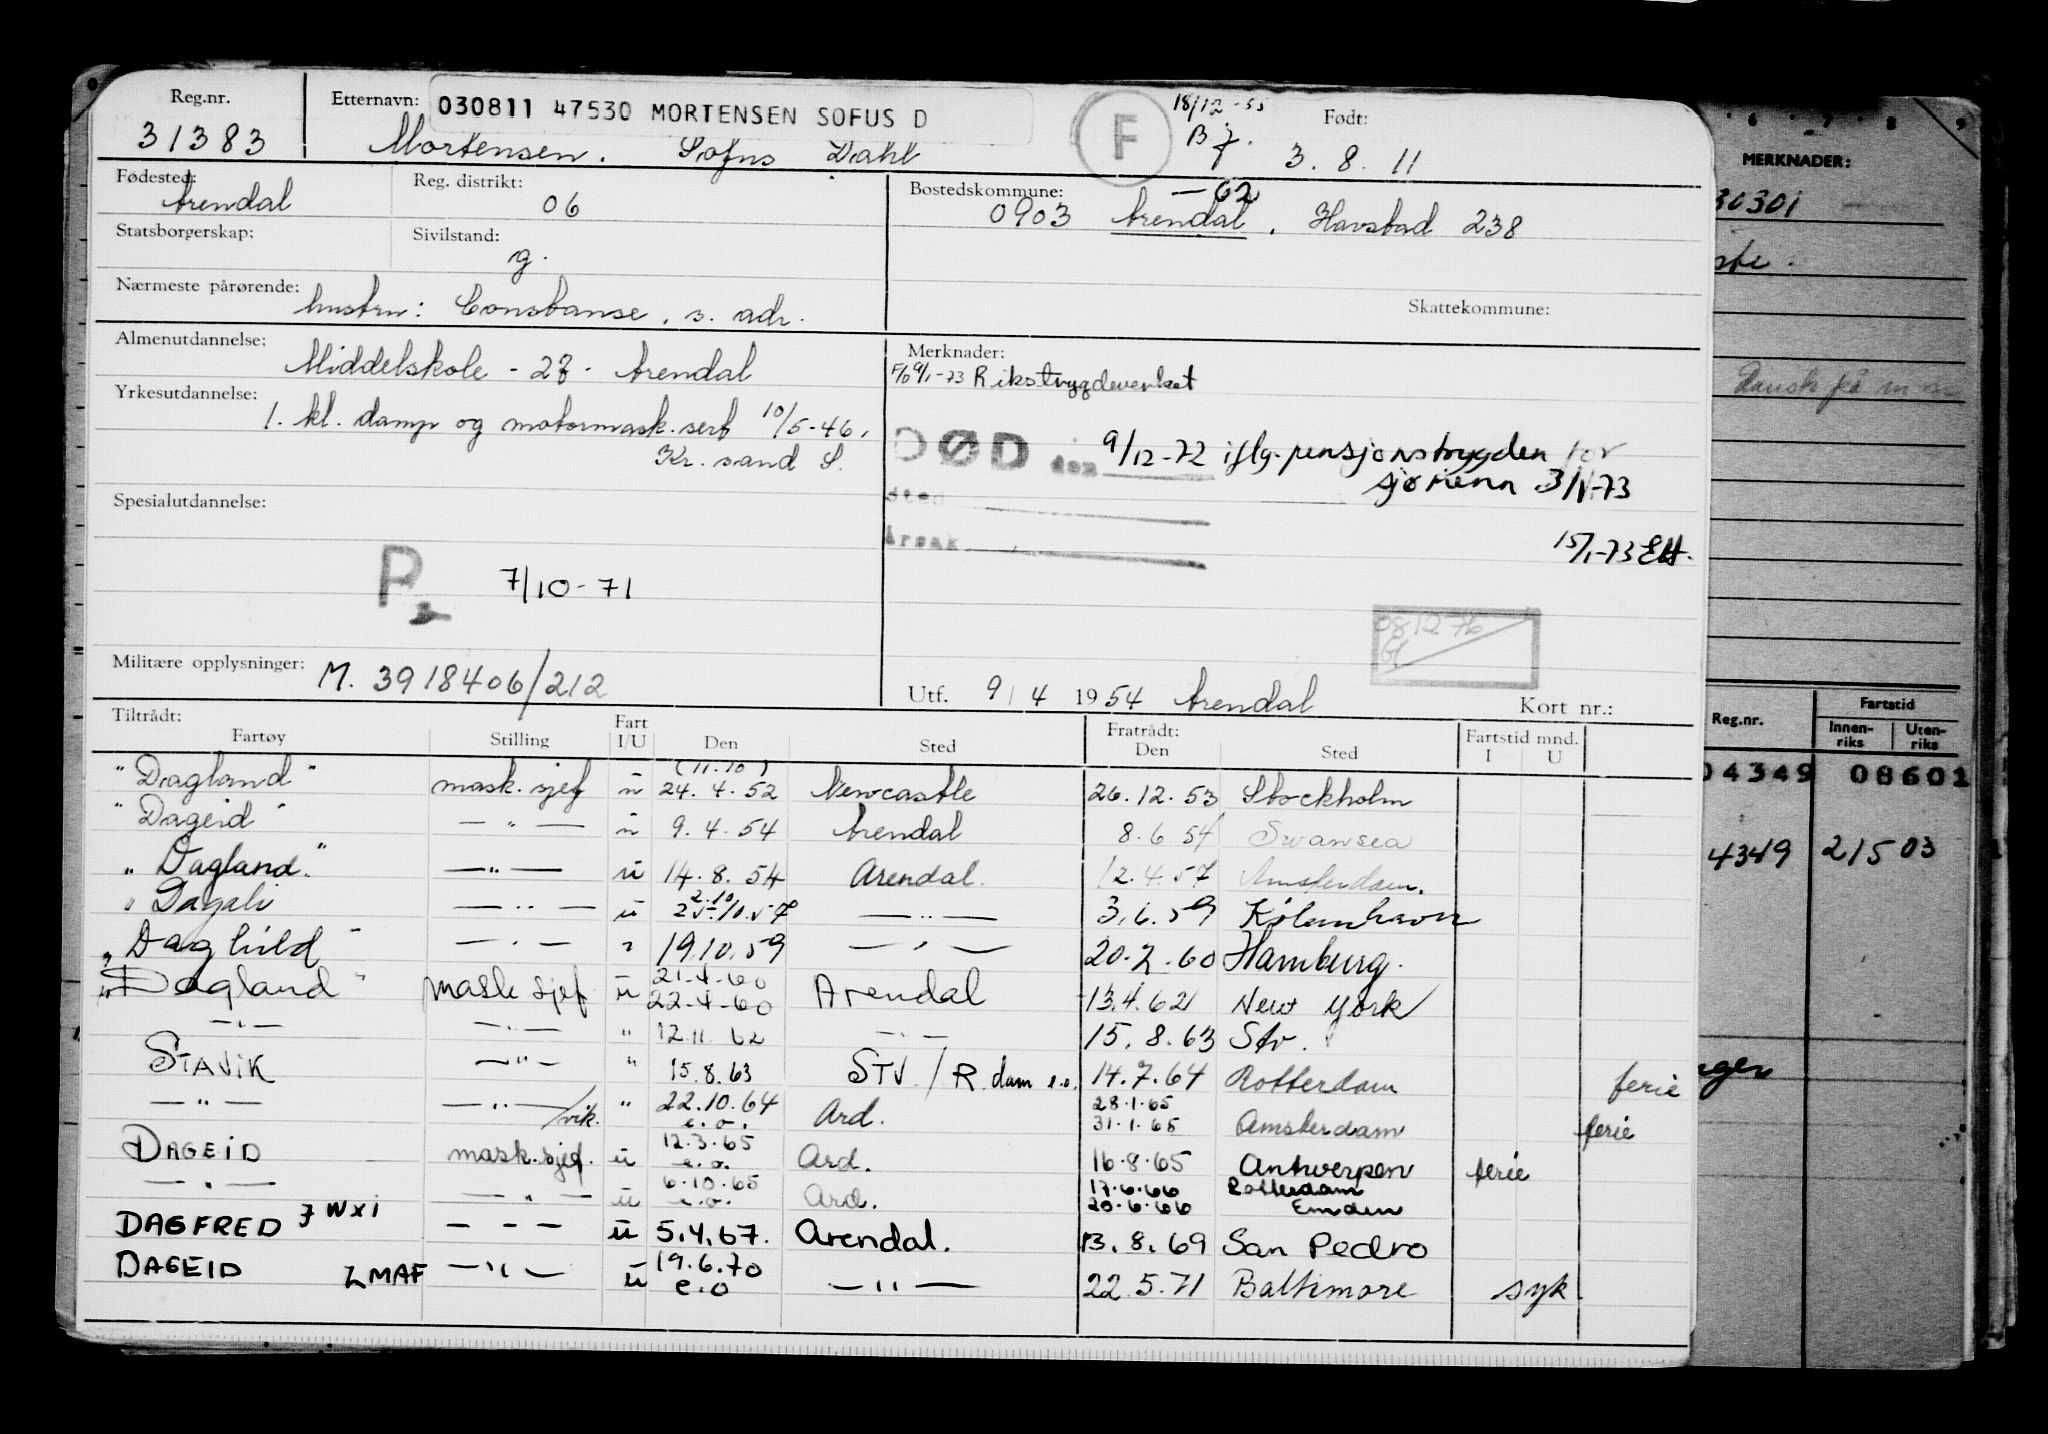 Reg.nr. Etternavn: 030811 47530 MORTENSEN SOFUS D F 18/12-55 Født:
31383 Mortensen. Sofus Dahl 3. 8. 11
Fødested: Reg. distrikt: Bostedskommune: -62
Arendal 06 0903 Arendal, Havstad 238
Statsborgerskap: Sivilstand:
g.
Nærmeste pårørende: Skattekommune:
hustru: Constanse, s. adr.
Almenutdannelse: Merknader:
Middelskole - 27 - Arendal Rikstrygdeverket
Yrkesutdannelse:
1. kl. damp og motormask.sert 10/5-46,
Kr. sand S.
DØD den 9/12-72 iflg. pensjonstrygden for
sjømenn 3/1-73
sted
Årsak 15/1-73 EH.
Spesialutdannelse:
P 7/10-71
081276
Militære opplysninger: M. 3918406/212
Utf. 9/4 1954 Arendal Kort nr.:
Tiltrådt: Fart Fratrådt: Fartstid mnd.
Fartøy Stilling I/U Den Sted Den Sted I U
(11.10)
"Dagland" mask.sjef u 24. 4. 52 Newcastle 26.12.53 Stockholm
"Dageid" — " — u 9. 4. 54 Arendal 8. 6 54 Swansea
"Dagland." — " — u 14. 8. 54 Arendal. 12. 4. 57 Amsterdam.
"Dagali — " — u 25.10.57 — " — 3. 6. 59 København
"Daghild" — " — " 19.10.59 — " — 20.2.60 Hamburg.
21.4.60
"Dagland" mask sjef u 22.4.60 Arendal 13.4.62 New York
— " — — " — " 12.11.62 — " — 15. 8. 63 Stv.
STAVIK — " — " 15.8.63 STV. / R.dam e.o. 14.7.64 Rotterdam ferie
— " — — " — /vik. " 22.10.64 e.o. Ard. 28.1.65 31.1.65 Amsterdam ferie
DAGEID mask.sjef. u 12.3.65 e.o. Ard. 16.8.65 Antwerpen ferie
— " — — " — u 6.10.65 e.o. Ard. 17.6.66 Rotterdam
20.6.66 Emden
DAGFRED JWXI — " — u 5.4.67. Arendal. 13. 8. 69 San Pedro
DAGEID LMAF — " — u 19.6.70 e.o — " — 22. 5. 71 Baltimore syk.
6 7 8 9
MERKNADER:
30301
Dansk på
Reg.nr. Fartstid
Innenriks Utenriks
04349 08601
4349 21503